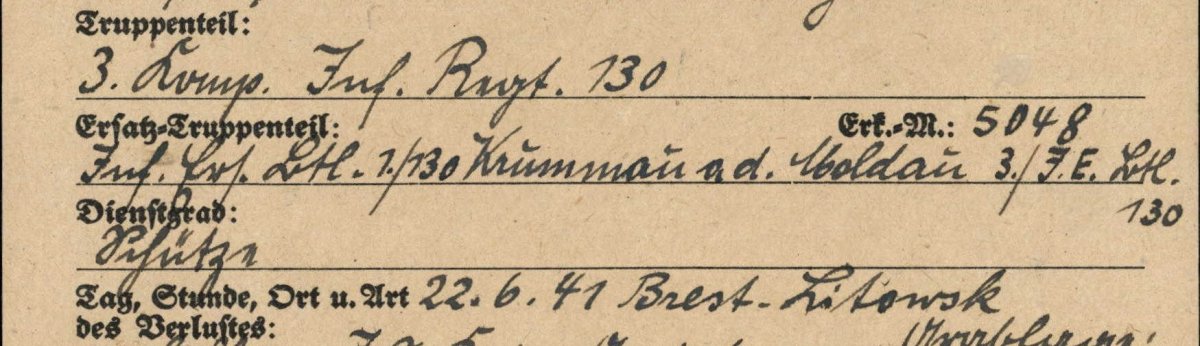 Truppenteil:
3. Komp. Inf. Regt. 130
Ersatz-Truppenteil: Erk.-M.: 5048
Inf. Ers. Btl. 1./130 Krummau a d. Moldau 3./J.E. Btl.
130
Dienstgrad:
Schütze
Tag, Stunde, Ort u. Art 22.6.41 Brest-Litowsk
des Verlustes: